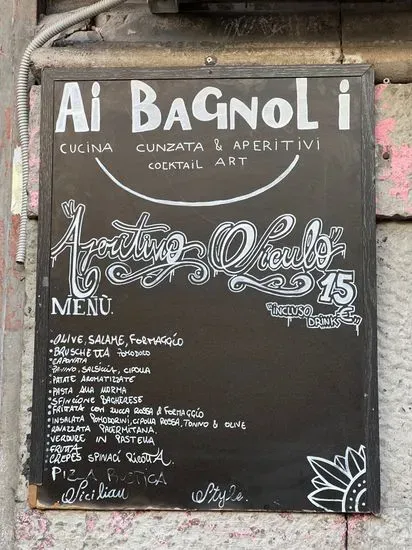 Ai BAGNOLi
CUCINA CUNZATA & APERITIVI
COCKTAIL ART
"Aperitivo Siculo"
15 €
MENÙ.
"INCLUSO DRINK"
• OLIVE, SALAME, FORMAGGIO
• BRUSCHETTA POMODORO
• CAPONATA
• PANINO, SALSICCIA, CIPOLLA
• PATATE AROMATIZZATE
• PASTA ALLA NORMA
• SFINCIONE BAGHERESE
• FRITTATA CON ZUCCA ROSSA & FORMAGGIO
• INSALATA POMODORINI, CIPOLLA ROSSA, TONNO & OLIVE
• RAVAZZATA PALERMITANA
• VERDURE IN PASTELLA
• FRUTTA
• CREPES SPINACI RICOTTA.
PIZZA RUSTICA
Sicilian Style.